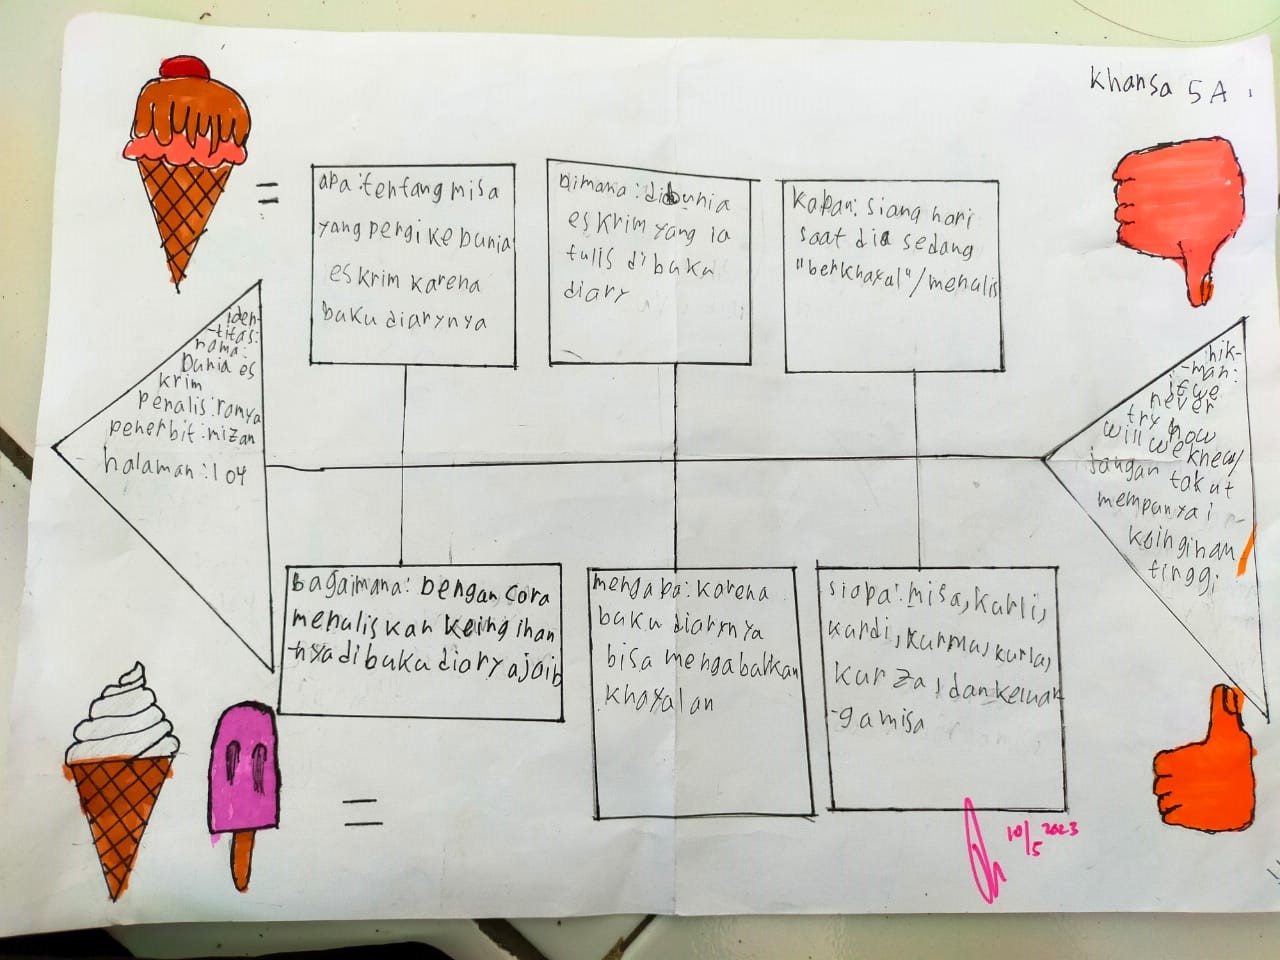 Khansa 5A
apa: tentang misa
yang pergi ke dunia
es krim karena
buku diarynya
Dimana: didunia
es krim yang ia
tulis dibuku
diary
Kapan: siang hari
saat dia sedang
"berkhayal"/menulis
iden-
-titas:
nama:
Dunia es
krim
penulis: ramya
penerbit: mizan
halaman: 104
hik-
-mah:
if we
never
try how
will we knew/
jangan takut
mempunyai
keinginan
tinggi
bagaimana: Dengan cara
menuliskan keinginan
-nya dibuku diary ajaib
mengapa: karena
buku diarynya
bisa mengabulkan
khayalan
siapa: misa, kurli,
kurdi, kurma, kurla,
kurza, dan keluar
-ga misa
10/5 2023